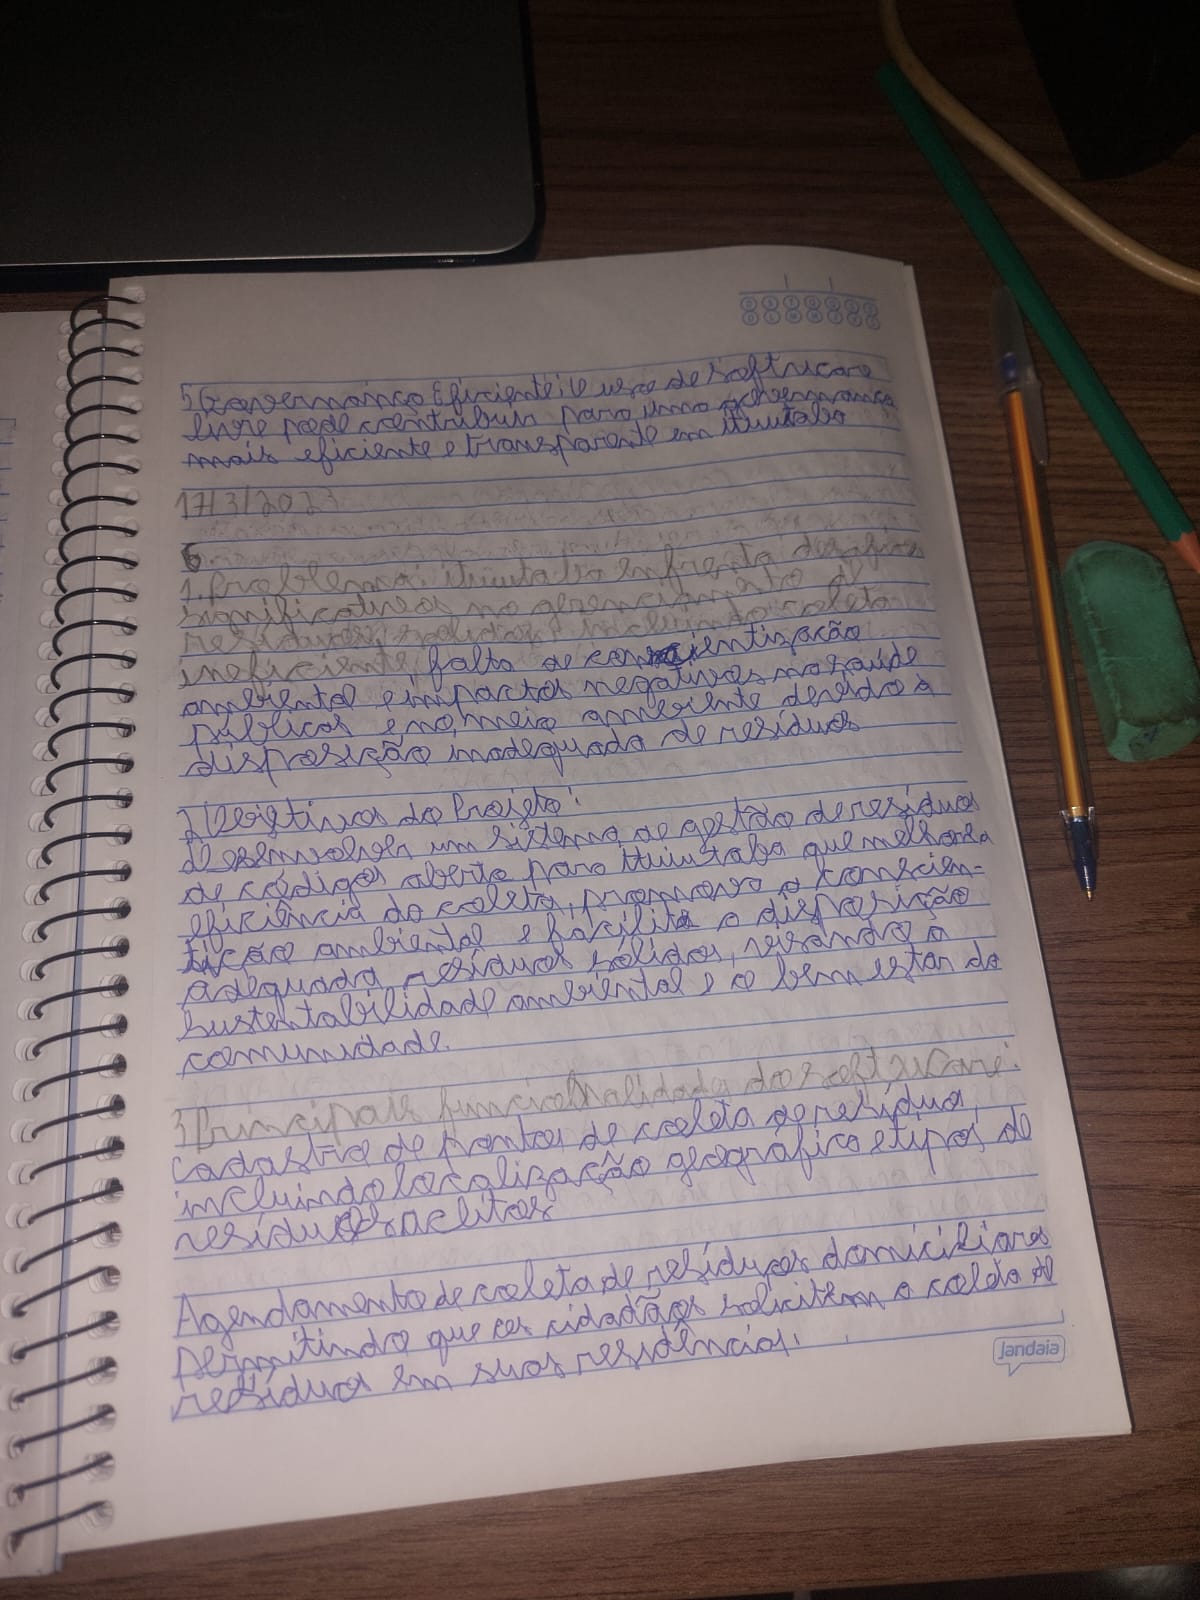 5 Governança Eficiente: O uso de software
livre pode contribuir para uma governança
mais eficiente e transparente em ituiutaba
17/3/2023
6
1. Problema: ituiutaba enfrenta desafios
significativos no gerenciamento de
residuos solidos, incluindo coleta
ineficiente, falta de conscientização
ambiental e impactos negativos na saúde
públicas e no meio ambiente devido à
disposição inadequada de resíduos
2 Objetivos do Projeto:
desenvolver um sistema de gestão de resíduos
de códigos aberto para ituiutaba que melhore a
eficiência da coleta, promova a conscien-
tição ambiental e facilite a disposição
adequada resíduos sólidos, visando a
sustentabilidade ambiental e o bem estar da
comunidade.
3 Principais funcionalidades do software:
cadastro de pontos de coleta de resídua,
incluindo localização geográfica e tipos de
resíduos aceitos
Agendamento de coleta de resíduos domiciliares
permitindo que os cidadãos solicitem a coleta de
resíduos em suas residências.
Jandaia